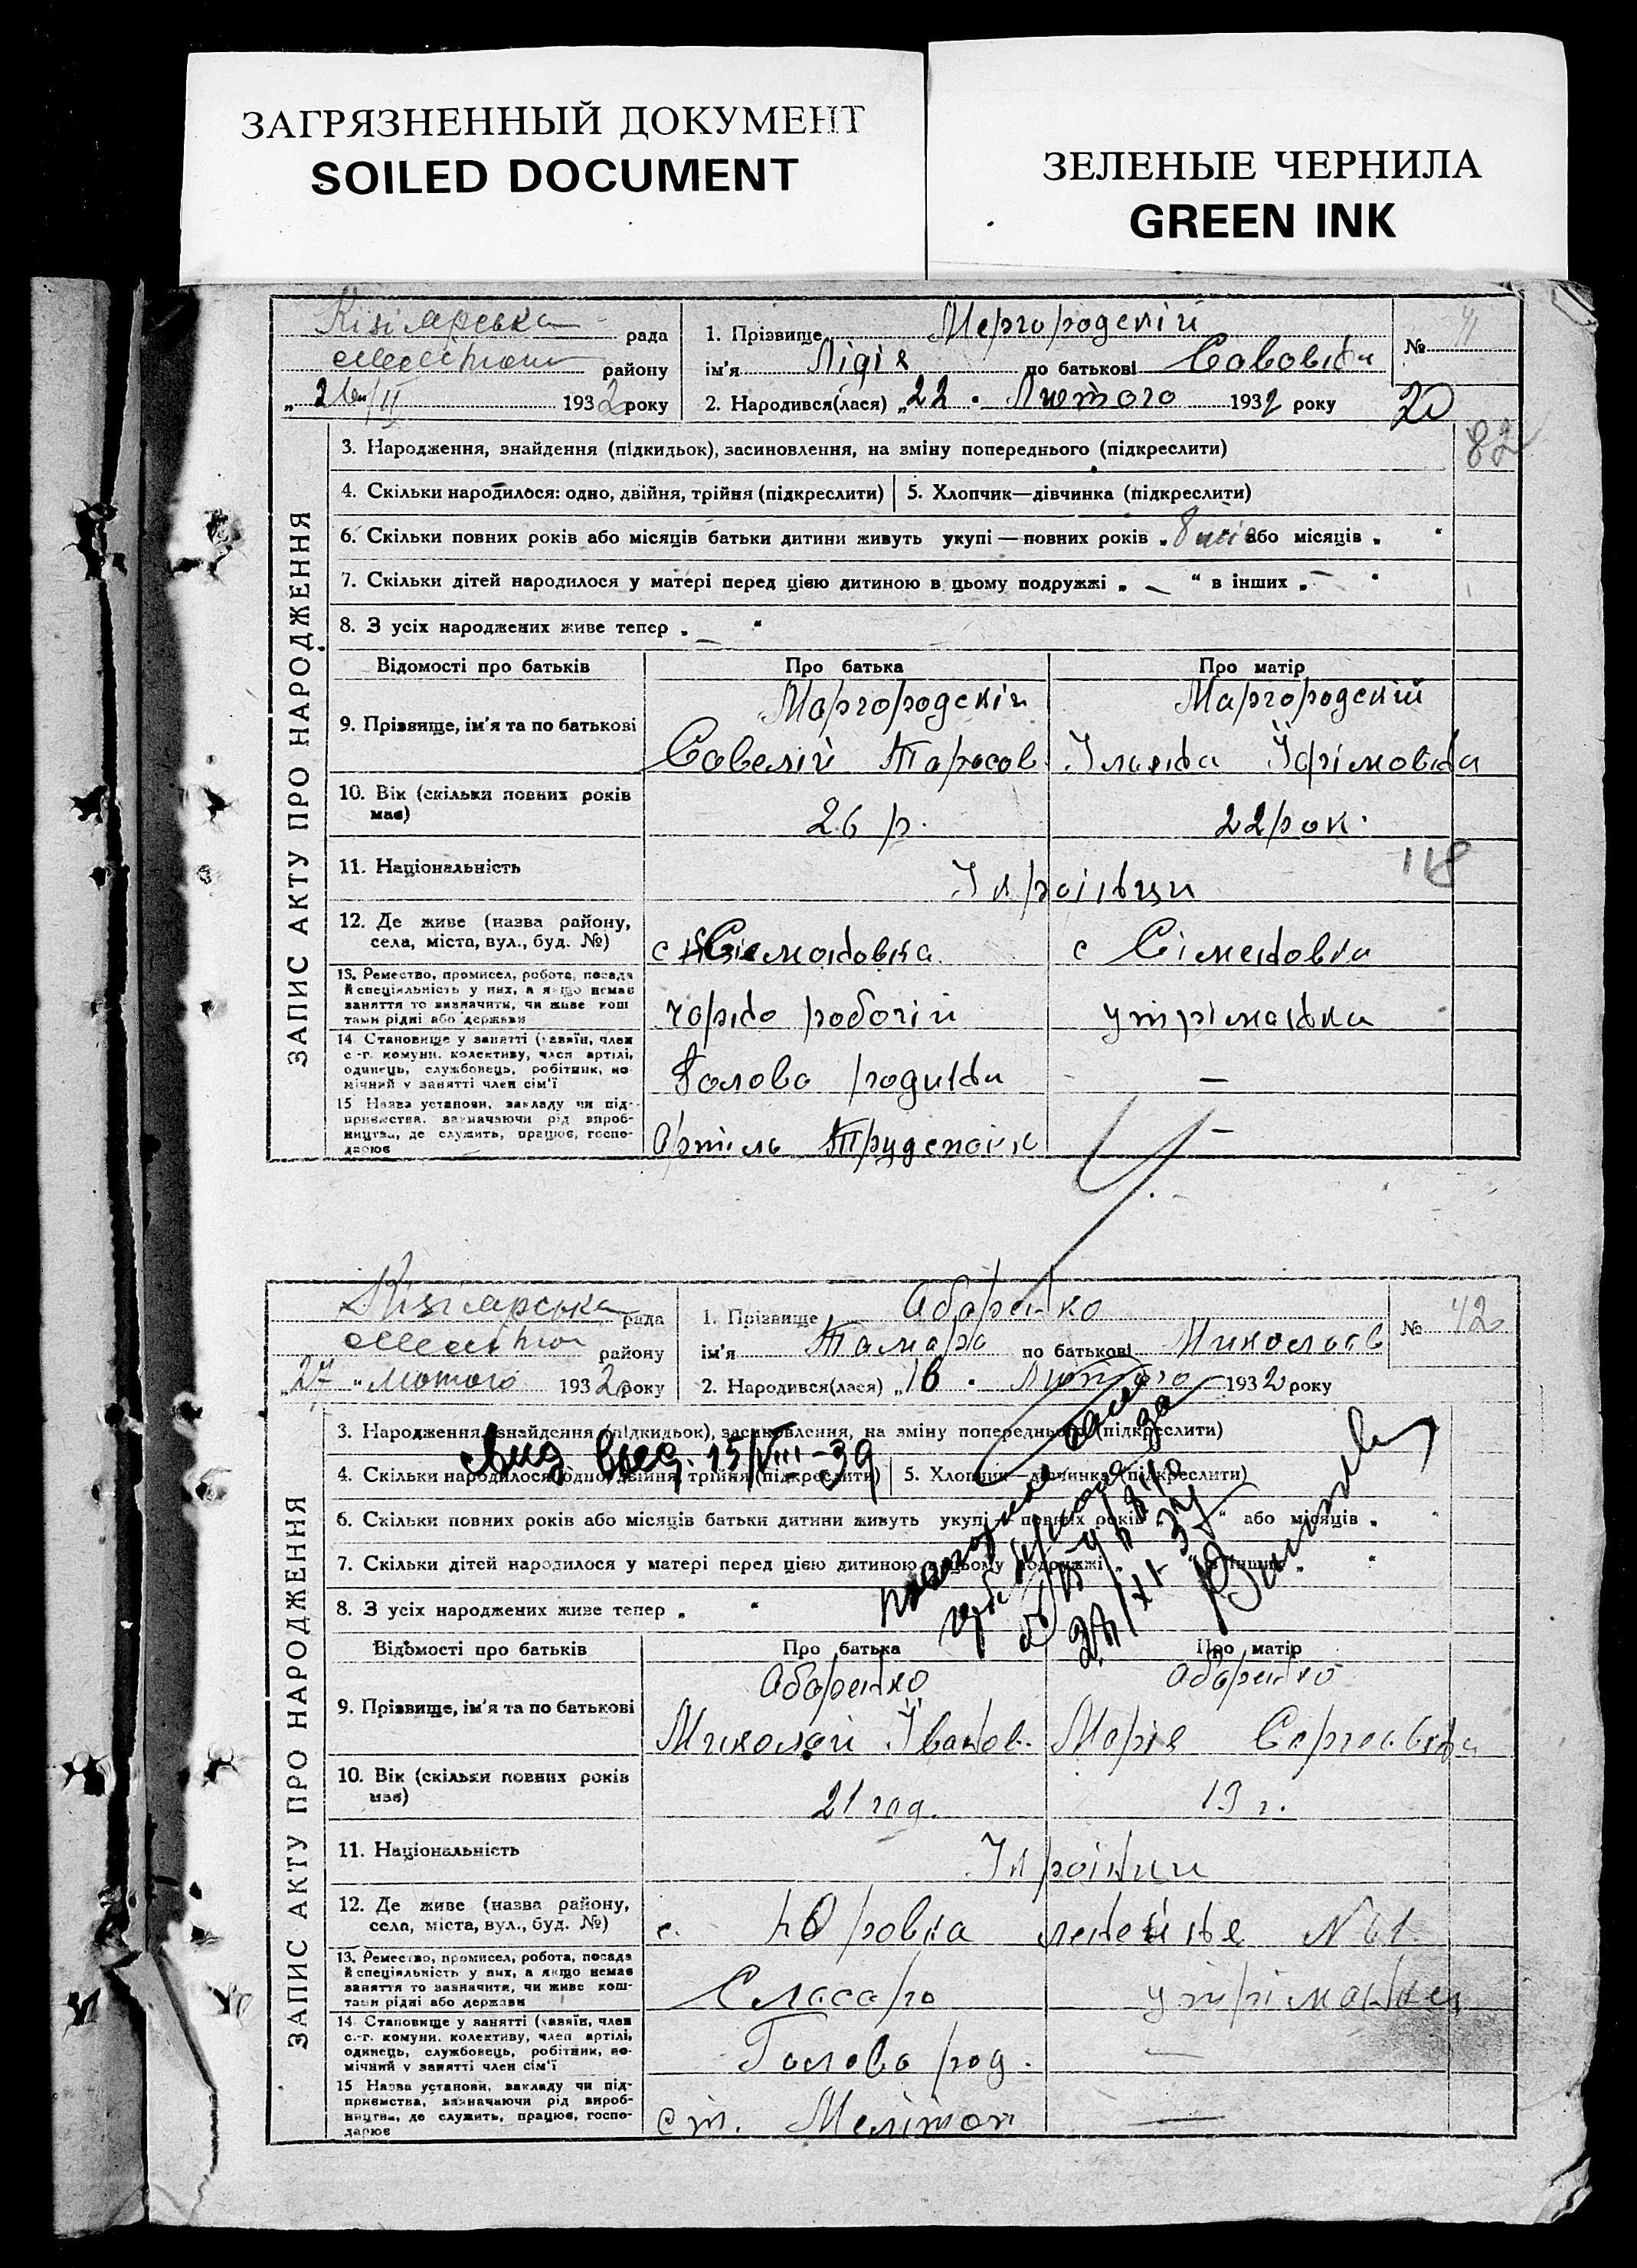 ЗАГРЯЗНЕННЫЙ ДОКУМЕНТ
SOILED DOCUMENT
ЗЕЛЕНЫЕ ЧЕРНИЛА
GREEN INK
Кізіярська рада
району
„26/II 1932 року
1. Прізвище Мергородскій
ім'я Лідія по батькові Савовна
2. Народився(лася) „22 Лютого 1932 року
№ 41
20
82
ЗАПИС АКТУ ПРО НАРОДЖЕННЯ
3. Народження, знайдення (підкидьок), засиновлення, на зміну попереднього (підкреслити)
4. Скільки народилося: одно, двійня, трійня (підкреслити)
5. Хлопчик—дівчинка (підкреслити)
6. Скільки повних років або місяців батьки дитини живуть укупі — повних років „ 8 або місяців „ “
7. Скільки дітей народилося у матері перед цією дитиною в цьому подружжі „ — “ в інших „ — “
8. З усіх народжених живе тепер „ — “
Відомості про батьків Про батька Про матір
9. Прізвище, ім'я та по батькові
Маргородскій
Савелій Тарасов
Маргородскій
Ульяна Їфрімовна
10. Вік (скільки повних років має)
26 р.
22 рок.
11. Національність
Українци
118
12. Де живе (назва району, села, міста, вул., буд. №)
с Сіменовка
13. Ремество, промисел, робота, посада й спеціяльність у них, а якщо немає заняття то визначити, чи живе кош тами рідні або держави
чорно робочій
утріманка
14 Становище у занятті (хазяїн, член с.-г. комуни, колективу, член артілі, одинець, службовець, робітник, помічний у занятті член сім'ї
Голова родини
—
15 Назва установи, закладу чи підприємства, зазначаючи рід виробництва, де служить, працює, господарює
Артіль
—
Кізіярська рада
району
„27“ лютого 1932 року
1. Прізвище Абаренко
ім'я Тамара по батькові Николаєв
2. Народився(лася) „16 Лютого 1932 року
№ 42
ЗАПИС АКТУ ПРО НАРОДЖЕННЯ
3. Народження, знайдення (підкидьок), засиновлення, на зміну попереднього (підкреслити)
15/VIII-39
4. Скільки народилося: одно, двійня, трійня (підкреслити)
5. Хлопчик—дівчинка (підкреслити)
6. Скільки повних років або місяців батьки дитини живуть укупі — повних років „ “ або місяців „ “
7. Скільки дітей народилося у матері перед цією дитиною в цьому подружжі „ “ в інших „ “
8. З усіх народжених живе тепер „ “
Відомості про батьків Про батька Про матір
9. Прізвище, ім'я та по батькові
Абаренко
Миколай Їванов.
Абаренко
Марія Сергеєвна
10. Вік (скільки повних років має)
21 год.
19 г.
11. Національність
Українци
12. Де живе (назва району, села, міста, вул., буд. №)
с. Юровка № 61
13. Ремество, промисел, робота, посада й спеціяльність у них, а якщо немає заняття то зазначити, чи живе коштами рідні або держави
Слєсарь
утріманка
14 Становище у занятті (хазяїн, член с.-г. комуни, колективу, член артілі, одинець, службовець, робітник, помічний у занятті член сім'ї
Голова род.
—
15 Назва установи, закладу чи підприємства, зазначаючи рід виробництва, де служить, працює, господарює
ст. Мелітоп
—